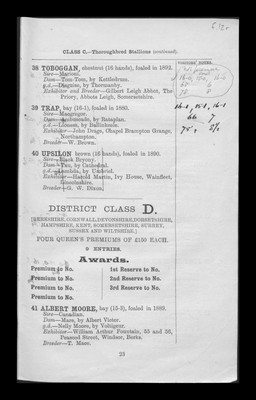 CLASS C.—Thoroughbred Stallions (continued).
38 TOBOGGAN, chestnut (16 hands), foaled in 1892.
Sire—Martoni.
Dam—Tom-Tom, by Kettledrum.
g.d.—Disguise, by Thormanby.
Exhibitor and Breeder—Gilbert Leigh Abbot, The
Priory, Abbots Leigh, Somersetshire.
39 TRAP, bay (16-1), foaled in 1890.
Sire—Masgregor.
Dam—Ambuscade, by Rataplan.
g.d.—Lioness, by Ballinkeele.
Exhibitor—John Drage, Chapel Brampton Grange,
Northampton.
Breeder—W. Brown.
16-1, 15-1, 16-1
66 7
75 8½
40 UPSILON brown (16 hands), foaled in 1890.
Sire—Black Bryony.
Dam—Tau, by Cathedral.
Exhibitor—Harold Martin, Ivy House, Wainfleet,
Lincolnshire.
Breeder—G. W. Dixon.
DISTRICT CLASS D.
(BERKSHIRE, CORNWALL, DEVONSHIRE, DORSETSHIRE,
HAMPSHIRE, KENT, SOMERSETSHIRE, SURREY,
SUSSEX AND WILTSHIRE.)
FOUR QUEEN'S PREMIUMS OF £150 EACH.
9 ENTRIES.
Awards.
Premium to No. 1st Reserve to No.
Premium to No. 2nd Reserve to No.
Premium to No. 3rd Reserve to No.
Premium to No.
41 ALBERT MOORE, bay (15-3), foaled in 1889.
Sire—Canadian.
Dam—Mare, by Albert Victor.
g.d.—Nelly Moore, by Voltigeur.
Exhibitor—William Arthur Fountain, 53 and 55,
Peascod Street, Windsor, Berks.
Breeder—T. Mann.
23